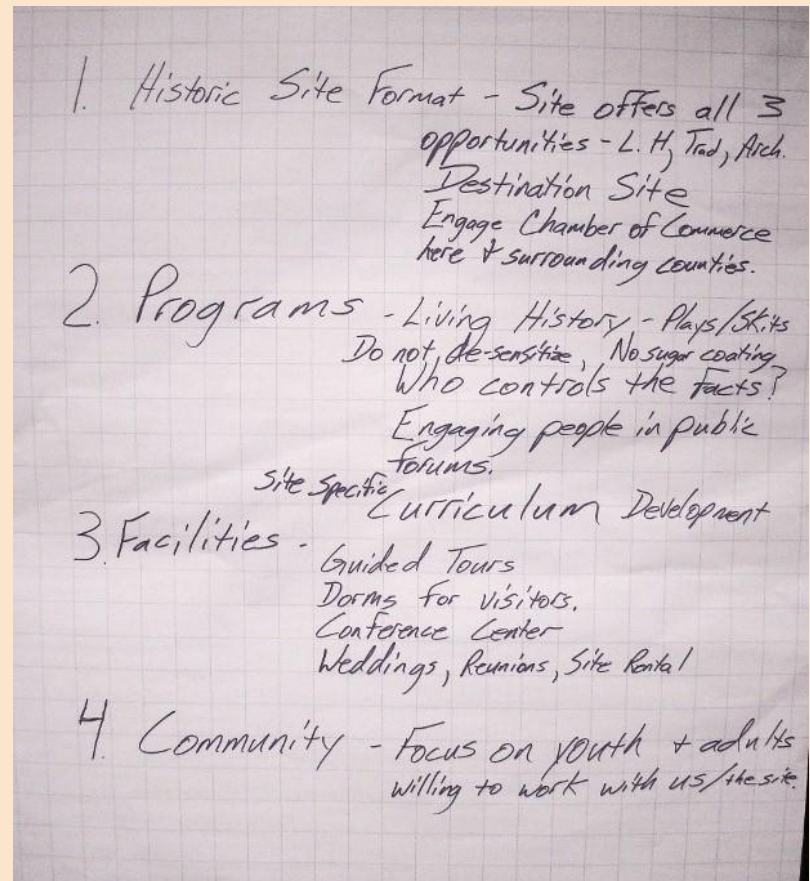 1. Historic Site Format - Site offers all 3
opportunities - L.H, Trad, Arch.
Destination Site
Engage Chamber of Commerce
here & surrounding counties.
2. Programs - Living History - Plays/Skits
Do not de-sensitize, No sugar coating
Who controls the facts?
Engaging people in public
forums.
Site Specific
Curriculum Development
3. Facilities -
Guided Tours
Dorms for visitors.
Conference Center
Weddings, Reunions, Site Rental
4. Community - Focus on youth & adults
willing to work with us/the site.